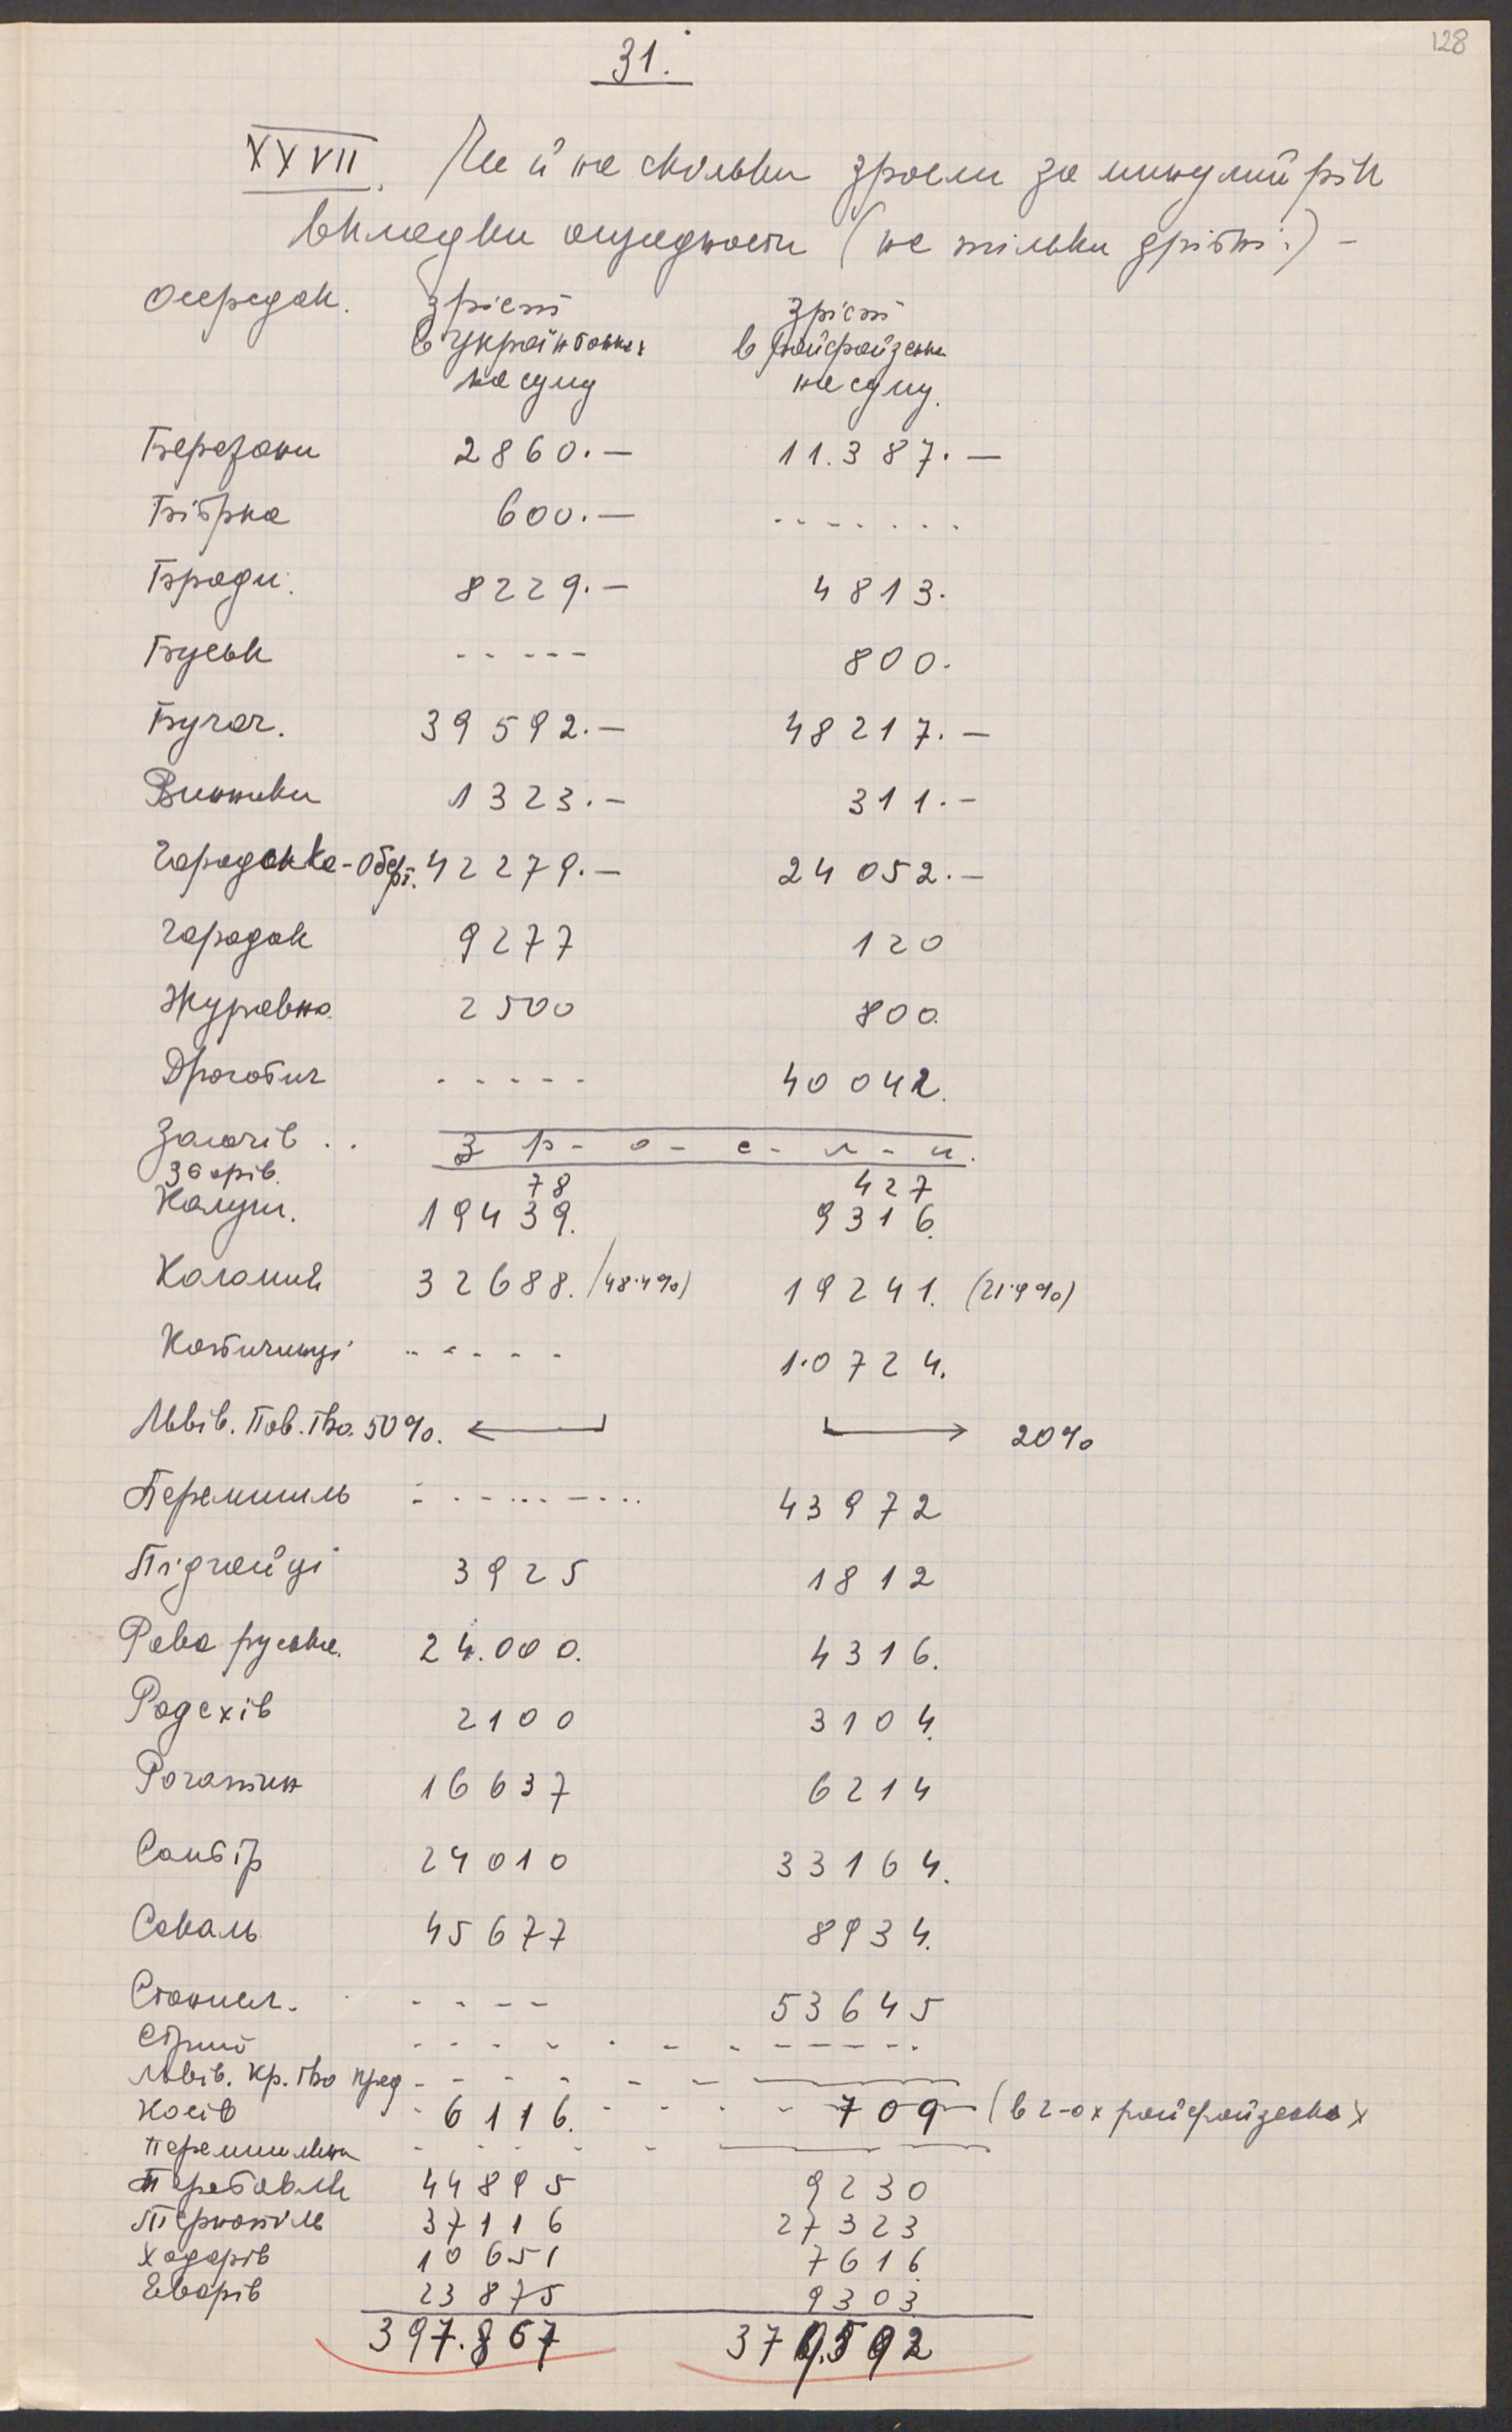 128
31.
XXVII. Чи й на скільки зросли за минулий рік
вкладки ощадности (не тільки дрібні:) -
осередок. зріст зріст
в Українбанках в райфайзенках
на суму на суму.
Бережани 2860.— 11.387.—
Бібрка 600.— - - - - - - -
Броди. 8229.— 4813.
Буськ - - - - - 800.
Бучач. 39592.— 48217.—
Винники 1323.— 311.—
Городенка-Оберт. 42279.— 24052.—
Городок 9277 120
Журавно. 2500 800.
Дрогобич - - - - - 40042.
Золочів . . з р - о - с - л - и.
Зборів. 78 427
Калуш. 19439. 9316.
Коломия 32688. (48.4%) 19241. (21.9%)
Копичинці - - - - - 10724.
Львів. Пов. тво. 50%. ← → 20%
Перемишль - - - - - - - 43972
Підгайці 3925 1812
Рава руська. 24.000. 4316.
Радехів 2100 3104.
Рогатин 16637 6214
Самбір 24010 33164.
Сокаль 45677 8934.
Станисл. - - - - 53645
Стрий - - - - - - - - - - -
Львів. Кр. тво пред - - - - - -
Косів - 6116. - - - - 709 (в 2-ох райфайзенках
Перемишляни - - - - -
Теребовля 44895 9230
Тернопіль 37116 27323
Ходорів 10651 7616.
Яворів 23875 9303
397.867 379.592